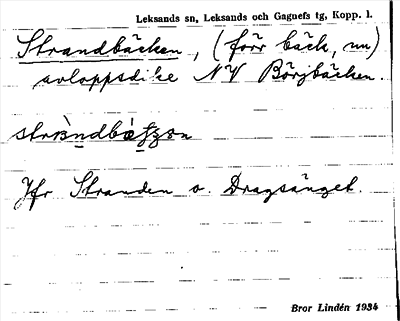 Leksands sn, Leksands och Gagnefs tg, Kopp. l.
Strandbäcken, (förr bäck, nu)
avloppsdike NV Börjbäcken.
Jfr Stranden o. Dragsänget.
Bror Lindén 1934